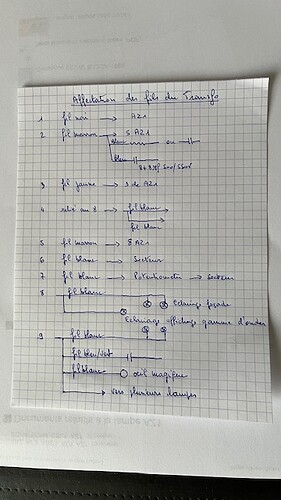 Affectation des fils du Transfo
1 fil noir → AZ1
2 fil marron → 5 AZ1
bleu ou
bleu
8+8µF 500/550V
3 fil jaune → 1 de AZ1
4 relié au 8 → fil blanc
fil blanc
5 fil marron → 8 AZ1
6 fil blanc → Secteur
7 fil blanc → Potentiomètre → secteur
8 fil blanc
Eclairage façade
Eclairage affichage gamme d'ondes
9 fil blanc
fil bleu/vert
fil blanc œil magique
vers plusieurs lampes